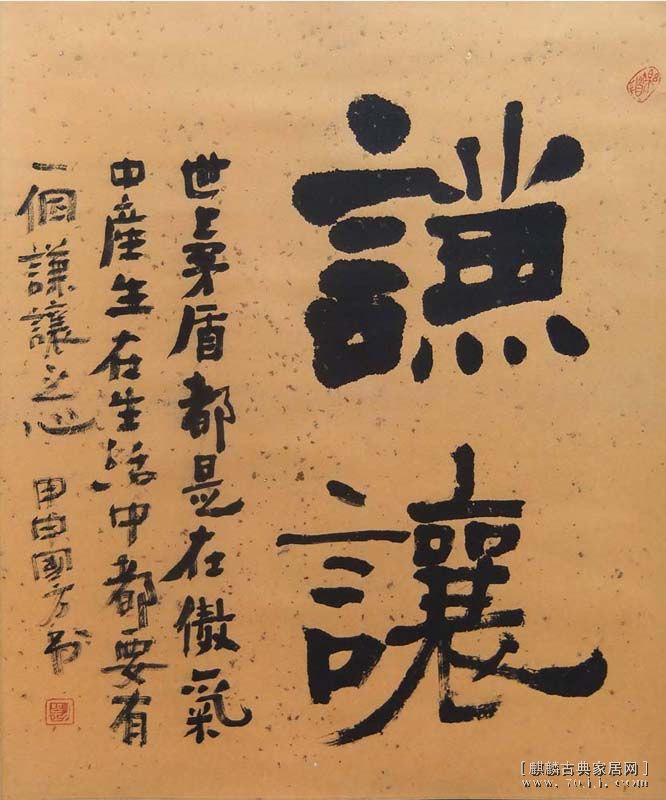 謙讓
世上矛盾都是在傲氣
中產生在生活中都要有
一個謙讓之心 甲申國方书
[麒麟古典家居网]
www.70jj.com